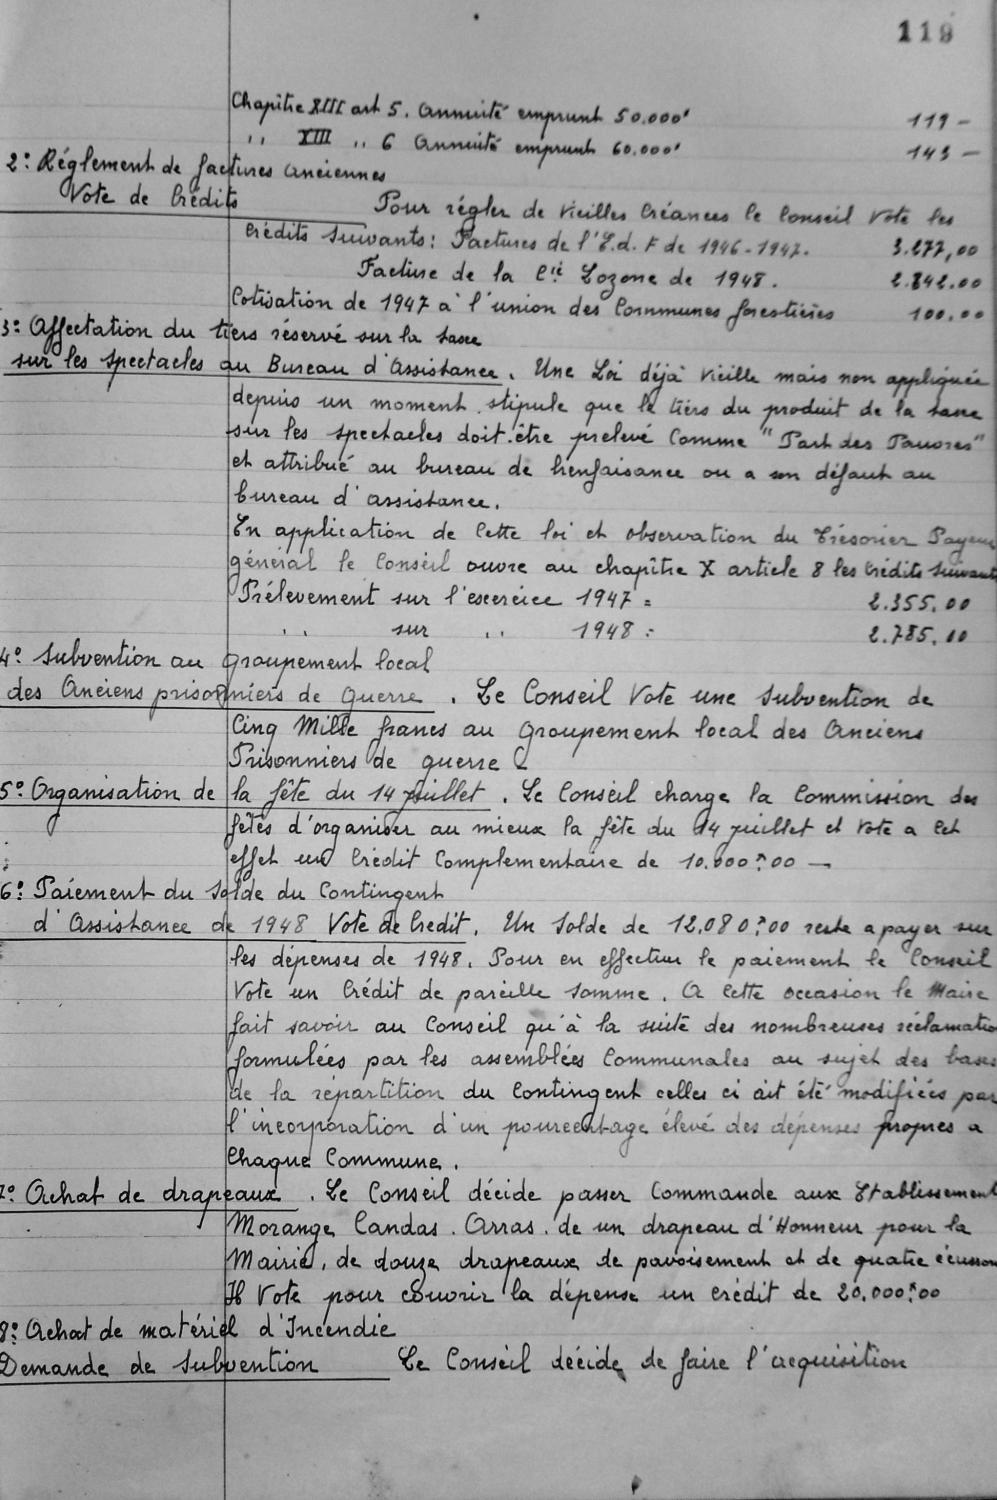 119
Chapitre XIII art 5. Annuité emprunt 50.000f 119 -
,, XIII ,, 6 Annuité emprunt 60.000f 143 -
2º: Réglement de factures anciennes
Vote de Crédits Pour régler de vieilles créances le Conseil vote les
crédits suivants: Factures de l'E.d.F de 1946-1947. 3.277,00
Facture de la Cié Lozone de 1948. 2.842.00
Cotisation de 1947 à l'union des Communes forestières 100.00
3º: Affectation du tiers réservé sur la taxe
sur les spectacles au Bureau d'Assistance. Une Loi déjà vieille mais non appliquée
depuis un moment stipule que le tiers du produit de la taxe
sur les spectacles doit être prelevé comme "Part des Pauvres"
et attribué au bureau de bienfaisance ou a son défaut au
bureau d'assistance.
En application de cette loi et observation du Trésorier Payeur
général le Conseil ouvre au chapître X article 8 les crédits suivants
Prélevement sur l'exercice 1947 = 2.355.00
,, sur ,, 1948 : 2.785.00
4º Subvention au groupement local
des Anciens prisonniers de guerre. Le Conseil vote une subvention de
Cinq Mille francs au groupement local des Anciens
Prisonniers de guerre
5º: Organisation de la fête du 14 Juillet. Le Conseil charge la Commission des
fêtes d'organiser au mieux la fête du 14 juillet et vote a cet
effet un crédit complementaire de 10.000f00 —
6º: Paiement du Solde du Contingent
d'Assistance de 1948 Vote de Credit. Un Solde de 12.080f00 reste a payer sur
les dépenses de 1948. Pour en effectuer le paiement le Conseil
Vote un Crédit de pareille somme. A cette occasion le Maire
fait savoir au Conseil qu'à la suite des nombreuses réclamatio
formulées par les assemblées Communales au sujet des bases
de la répartition du Contingent celles ci ait été modifiées par
l'incorporation d'un pourcentage élevé des dépenses propres a
chaque Commune.
7º: Achat de drapeaux. Le Conseil décide passer Commande aux Etablissement
Morange Candas. Arras. de un drapeau d'Honneur pour la
Mairie, de douze drapeaux de pavoisement et de quatre écusson
Il Vote pour couvrir la dépense un crédit de 20.000f00
8º: Achat de matériel d'Incendie
Demande de Subvention Le Conseil décide de faire l'acquisition